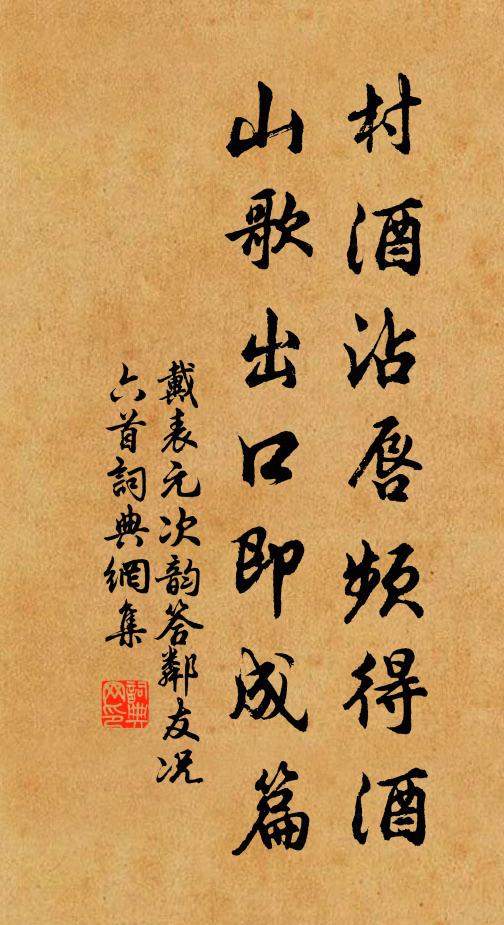 村酒沾唇頻得酒
山歌出口即成篇
戴表元次韵答鄰友况
六首詞典網集
詞典网印